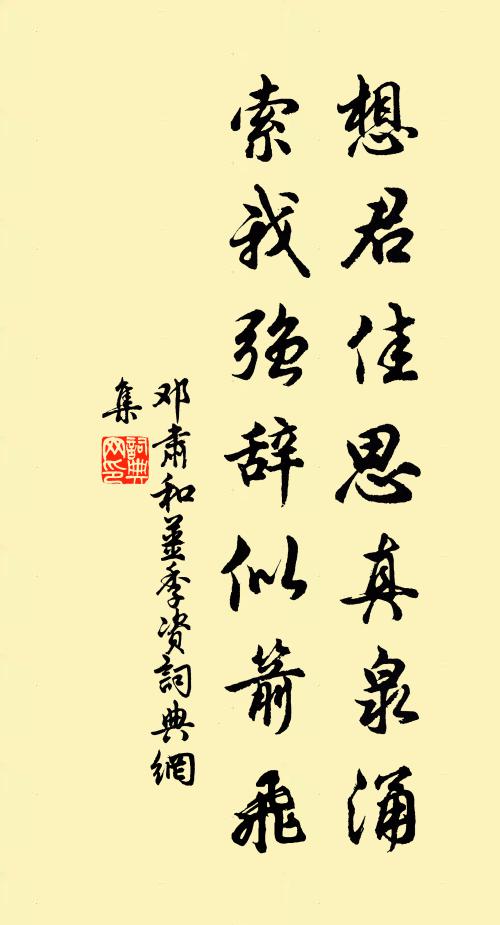 想君佳思真泉涌
索我强辞似箭飛
邓肃和董季资詞典網
集
詞典网印